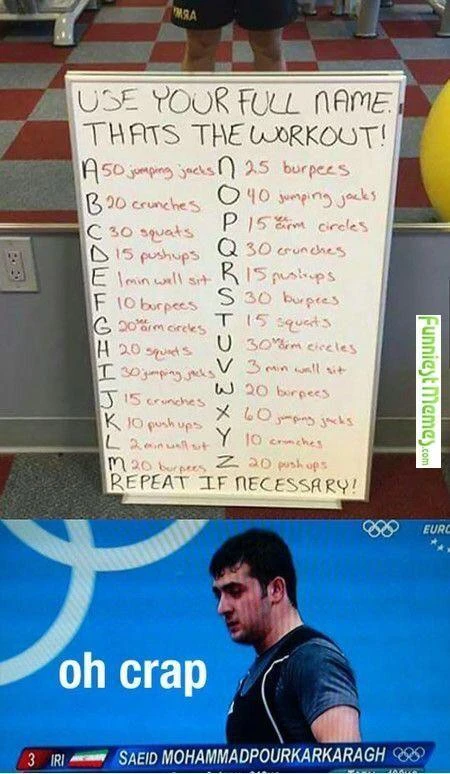 ARMY
USE YOUR FULL NAME.
THATS THE WORKOUT!
A 50 jumping jacks
B 20 crunches
C 30 squats
D 15 pushups
E 1 min wall sit
F 10 burpees
G 20 sec arm circles
H 20 squats
I 30 jumping jacks
J 15 crunches
K 10 push ups
L 2 min wall sit
M 20 burpees
N 25 burpees
O 40 jumping jacks
P 15 sec arm circles
Q 30 crunches
R 15 pushups
S 30 burpees
T 15 squats
U 30 sec arm circles
V 3 min wall sit
W 20 burpees
X 60 jumping jacks
Y 10 crunches
Z 20 push ups
REPEAT IF NECESSARY!
FunniestMemes.com
EURO
oh crap
3 IRI SAEID MOHAMMADPOURKARKARAGH